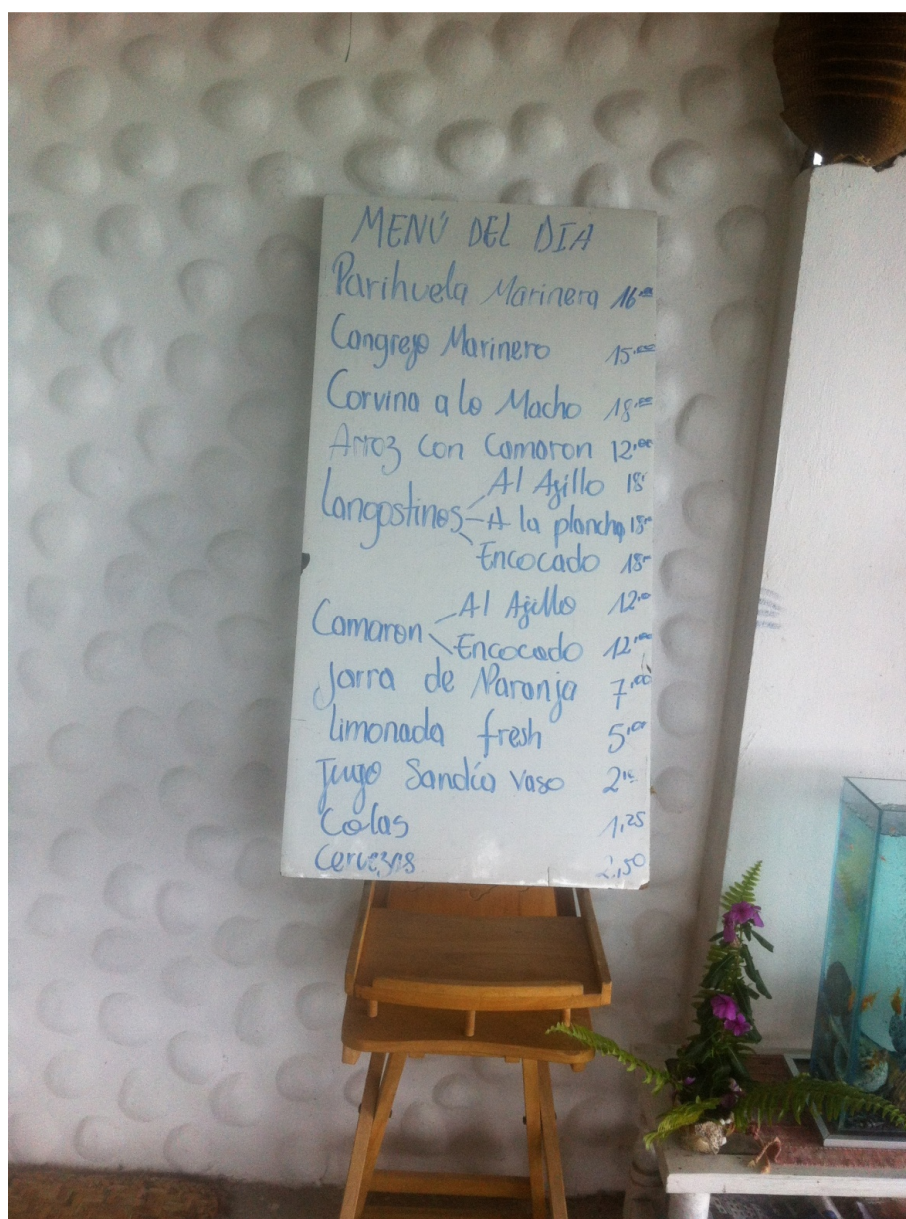 MENÚ DEL DIA
Parihuela Marinera 16.00
Cangrejo Marinero 15.00
Corvina a lo Macho 18.00
Arroz con Camaron 12.00
Al Ajillo 18
Langostinos A la plancha 18
Encocado 18
Al Ajillo 12.00
Camaron
Encocado 12.00
Jarra de Naranja 7.00
limonada fresh 5.00
Jugo Sandía vaso 2
Colas 1,25
Cervezas 2,50